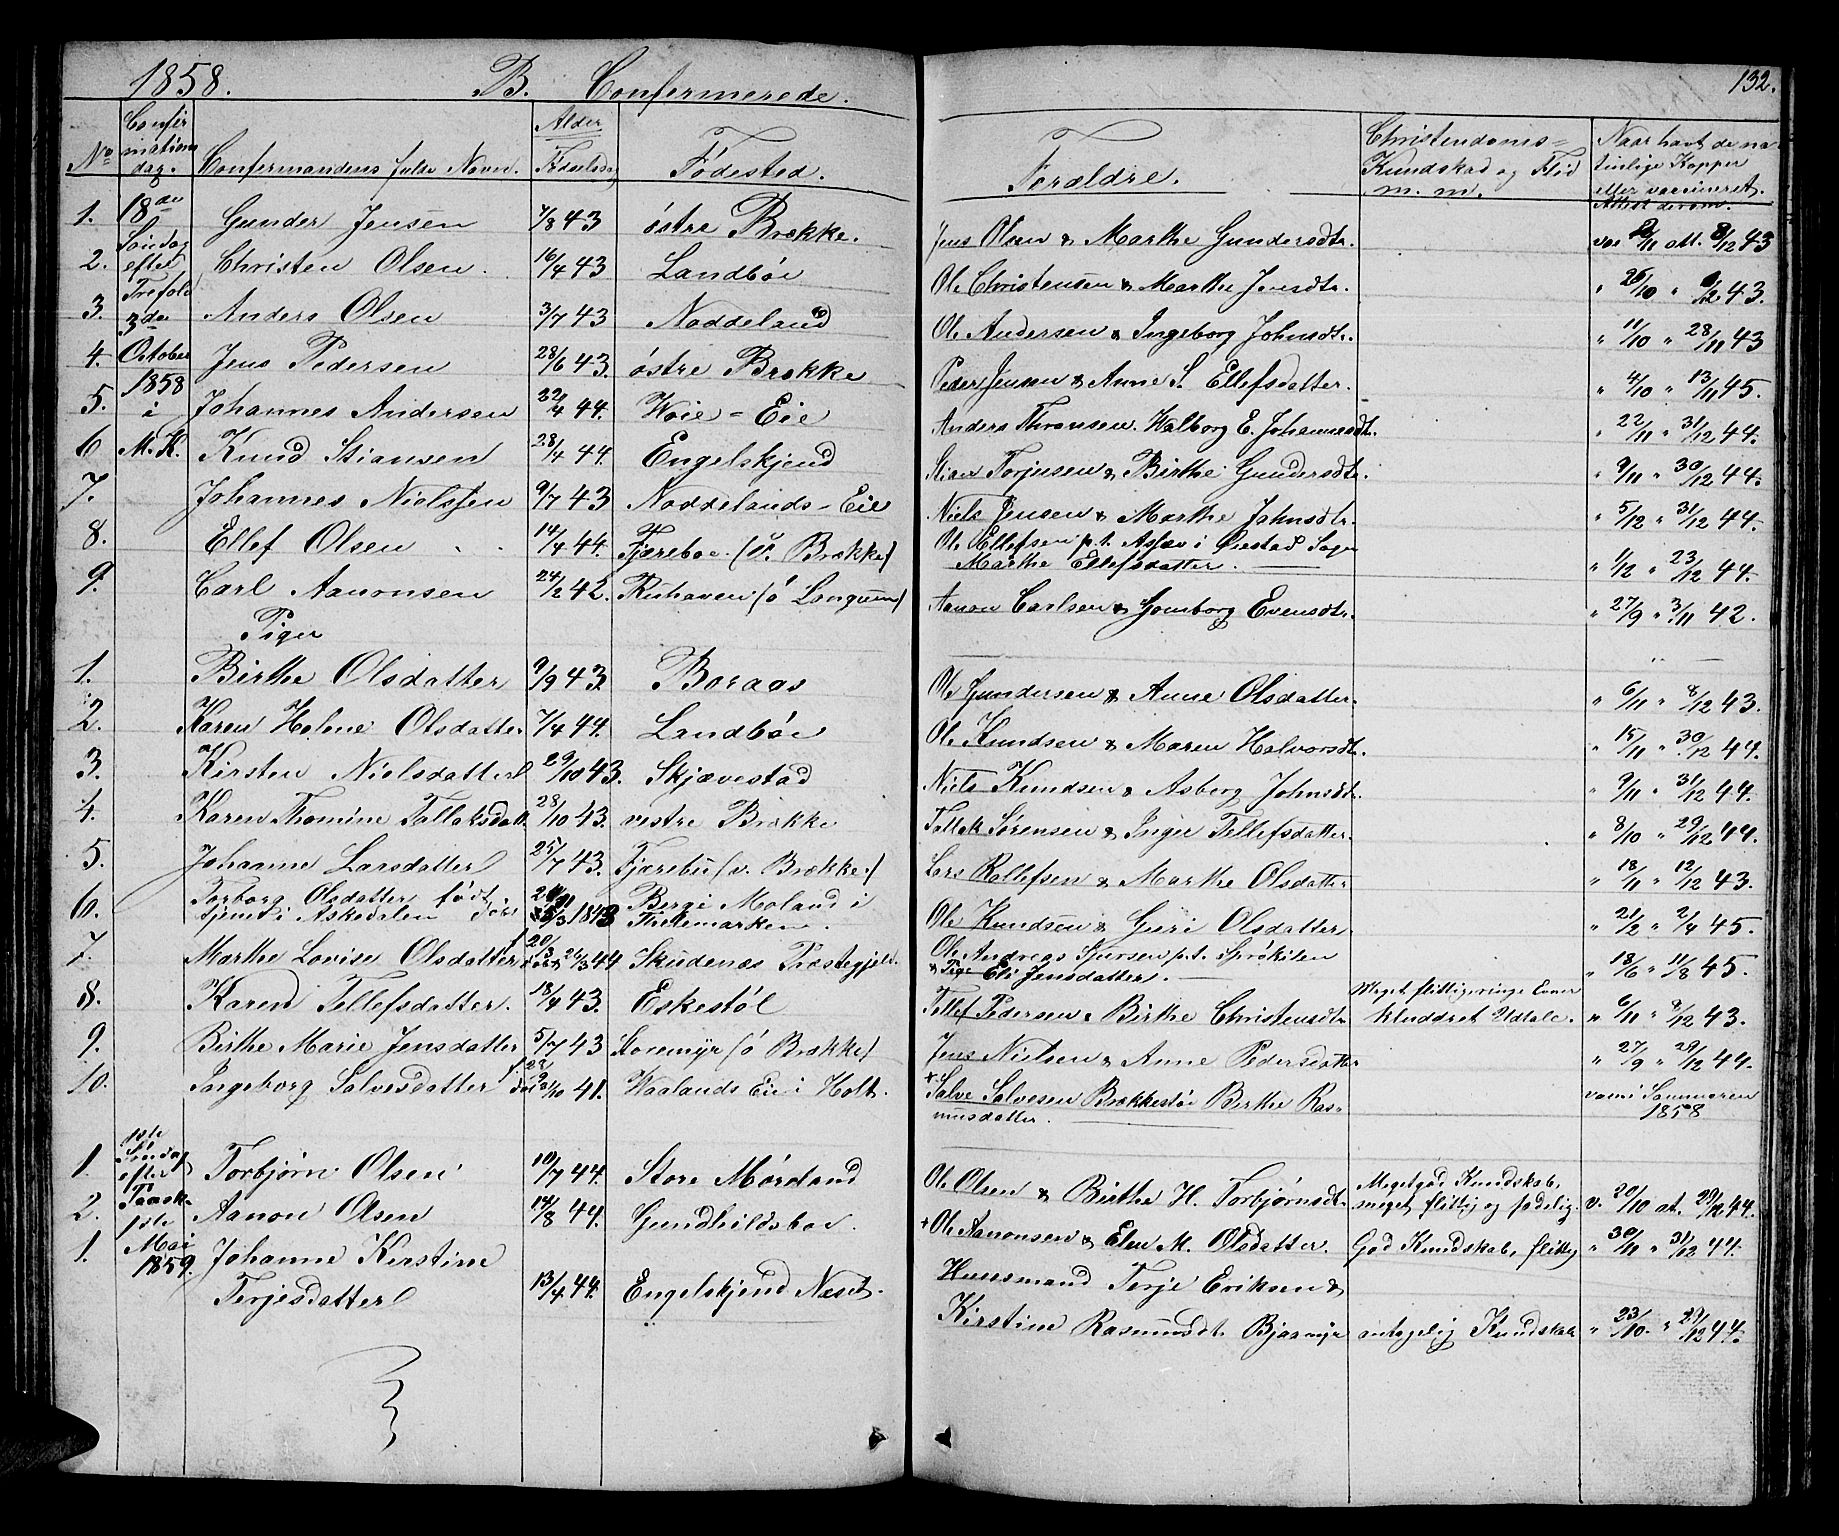 1858. B. Confermerede. 132.
No Confirmations dag. Confermandens fulde Navn. Alder Fødselsdag Fødested. Forældre. Christendoms- Kundskab og Flid m. m. Naar havt de naturlige Kopper eller vaccineret. Attest derom.
1. 18de Gunder Jensen 7/8 43 østre Brække. Jens Olsen & Marthe Gundersdtr. vac 2/11 att. 8/12 43
2. Søndag efter Christen Olsen. 16/4 43 Landbøe Ole Christensen & Marthe Jensdtr. " 26/10 " 43.
3. Trefold 3die Anders Olsen 3/7 43 Noddeland Ole Andersen & Ingeborg Johnsdtr. " 11/10 " 28/11 43
4. October Jens Pedersen 28/6 43. østre Brække Peder Jensen & Anne S. Ellefsdatter. " 4/10 " 13/11 45.
5. 1858 i Johannes Andersen 22/4 44. Woie-Eie Anders Thronsen. Walborg E. Johannesdt. " 22/11 " 31/12 44.
6 M. K. Knud Stiansen 28/4 44. Engelskjend Stian Torjusen & Birthe Gundersdtr. " 9/11 " 30/12 44.
7. Johannes Nielssen 9/7 43 Noddelands-Eie Niels Jensen & Marthe Johnsdtr. " 5/12 " 31/12 44.
8. Ellef Olsen 14/4 44. Fjæreboe (v. Brække) Ole Ellefsen p. t. i Øiestad Sogn
Marthe Ellefsdatter. " 1/12 " 23/12 44.
9. Carl Aanonsen 24/2 42. (ø Longum) Aanon Carlsen & Gomborg Evensdtr. " 27/9 " 3/11 42.
Piger
1. Birthe Olsdatter 9/9 43. Boraas Ole Gundersen & Anne Olsdatter. " 6/11 " 8/12 43.
2. Karen Helene Olsdatter 7/4 44. Landbøe Ole Knudsen & Maren Halvorsdt. " 15/11 " 30/12 44.
3. Kirsten Nielsdatter 29/10 43. Skjævestad Niels Knudsen & Asberg Johnsdt. " 9/11 " 31/12 44.
4. Karen Thomine Tallaksdatt. 28/10 43. vestre Brække Tallak Sørensen & Inger Tellefsdatter. " 8/10 " 29/12 44.
5. Johanne Larsdatter 25/7 43. Fjærebu (v. Brække) Lars Rollefsen & Marthe Olsdatter " 18/11 " 12/12 43.
6. Torborg Olsdatter født
tjent i Askedalen 1843 Berge Moland i
Thelemarken. Ole Knudsen & Guri Olsdatter. " 21/2 " 2/4 45.
7. Marthe Lovise Olsdatter f. 20/3 døbt 24/3 44 Skudenæs Præstegjeld. Ole Andreas Sjursen p. t. Sprøkilen
& Pige Eli Jensdatter. " 18/6 " 11/8 45.
8. Karen Tellefsdatter. 18/4 43. Eskestøl Tellef Pedersen & Birthe Christensdt. Meget flittig ringe Evner
kluddret Udtale. " 6/11 " 8/12 43.
9. Birthe Marie Jensdatter 5/7 43 Storemyr (ø Brække) Jens Nielsen & Anne Pedersdatter " 27/9 " 29/12 44.
10. Ingeborg Salvesdatter f. 22/9 døbt 41. Waalands Eie i Holt. + Salve Salvesen Brækkestø Birthe Rasmusdatter. vac i Sommeren
1858
1. 1ste Søndag efter Torbjørn Olsen 10/7 44. Store Mørland Ole Olsen & Birthe H. Torbjørnsdt. Meget god Kundskab,
meget flittig og sædelig. v. 20/10 at. 29/12 44.
2. Paaske 1ste Aanon Olsen 14/8 44. Gundhildsboe. + Ole Aanonsen & Elen M. Olsdatter. God Kundskab, flittig " 30/11 " 31/12 44.
1. Mai 1859. Johanne Kirstine
Terjesdatter 13/4 44. Engelskjend Næset. Huusmand Terje Eriksen &
Kirstine Rasmusdt. Bjarmyr antagelig Kundskab " 23/10. " 29/12 44.